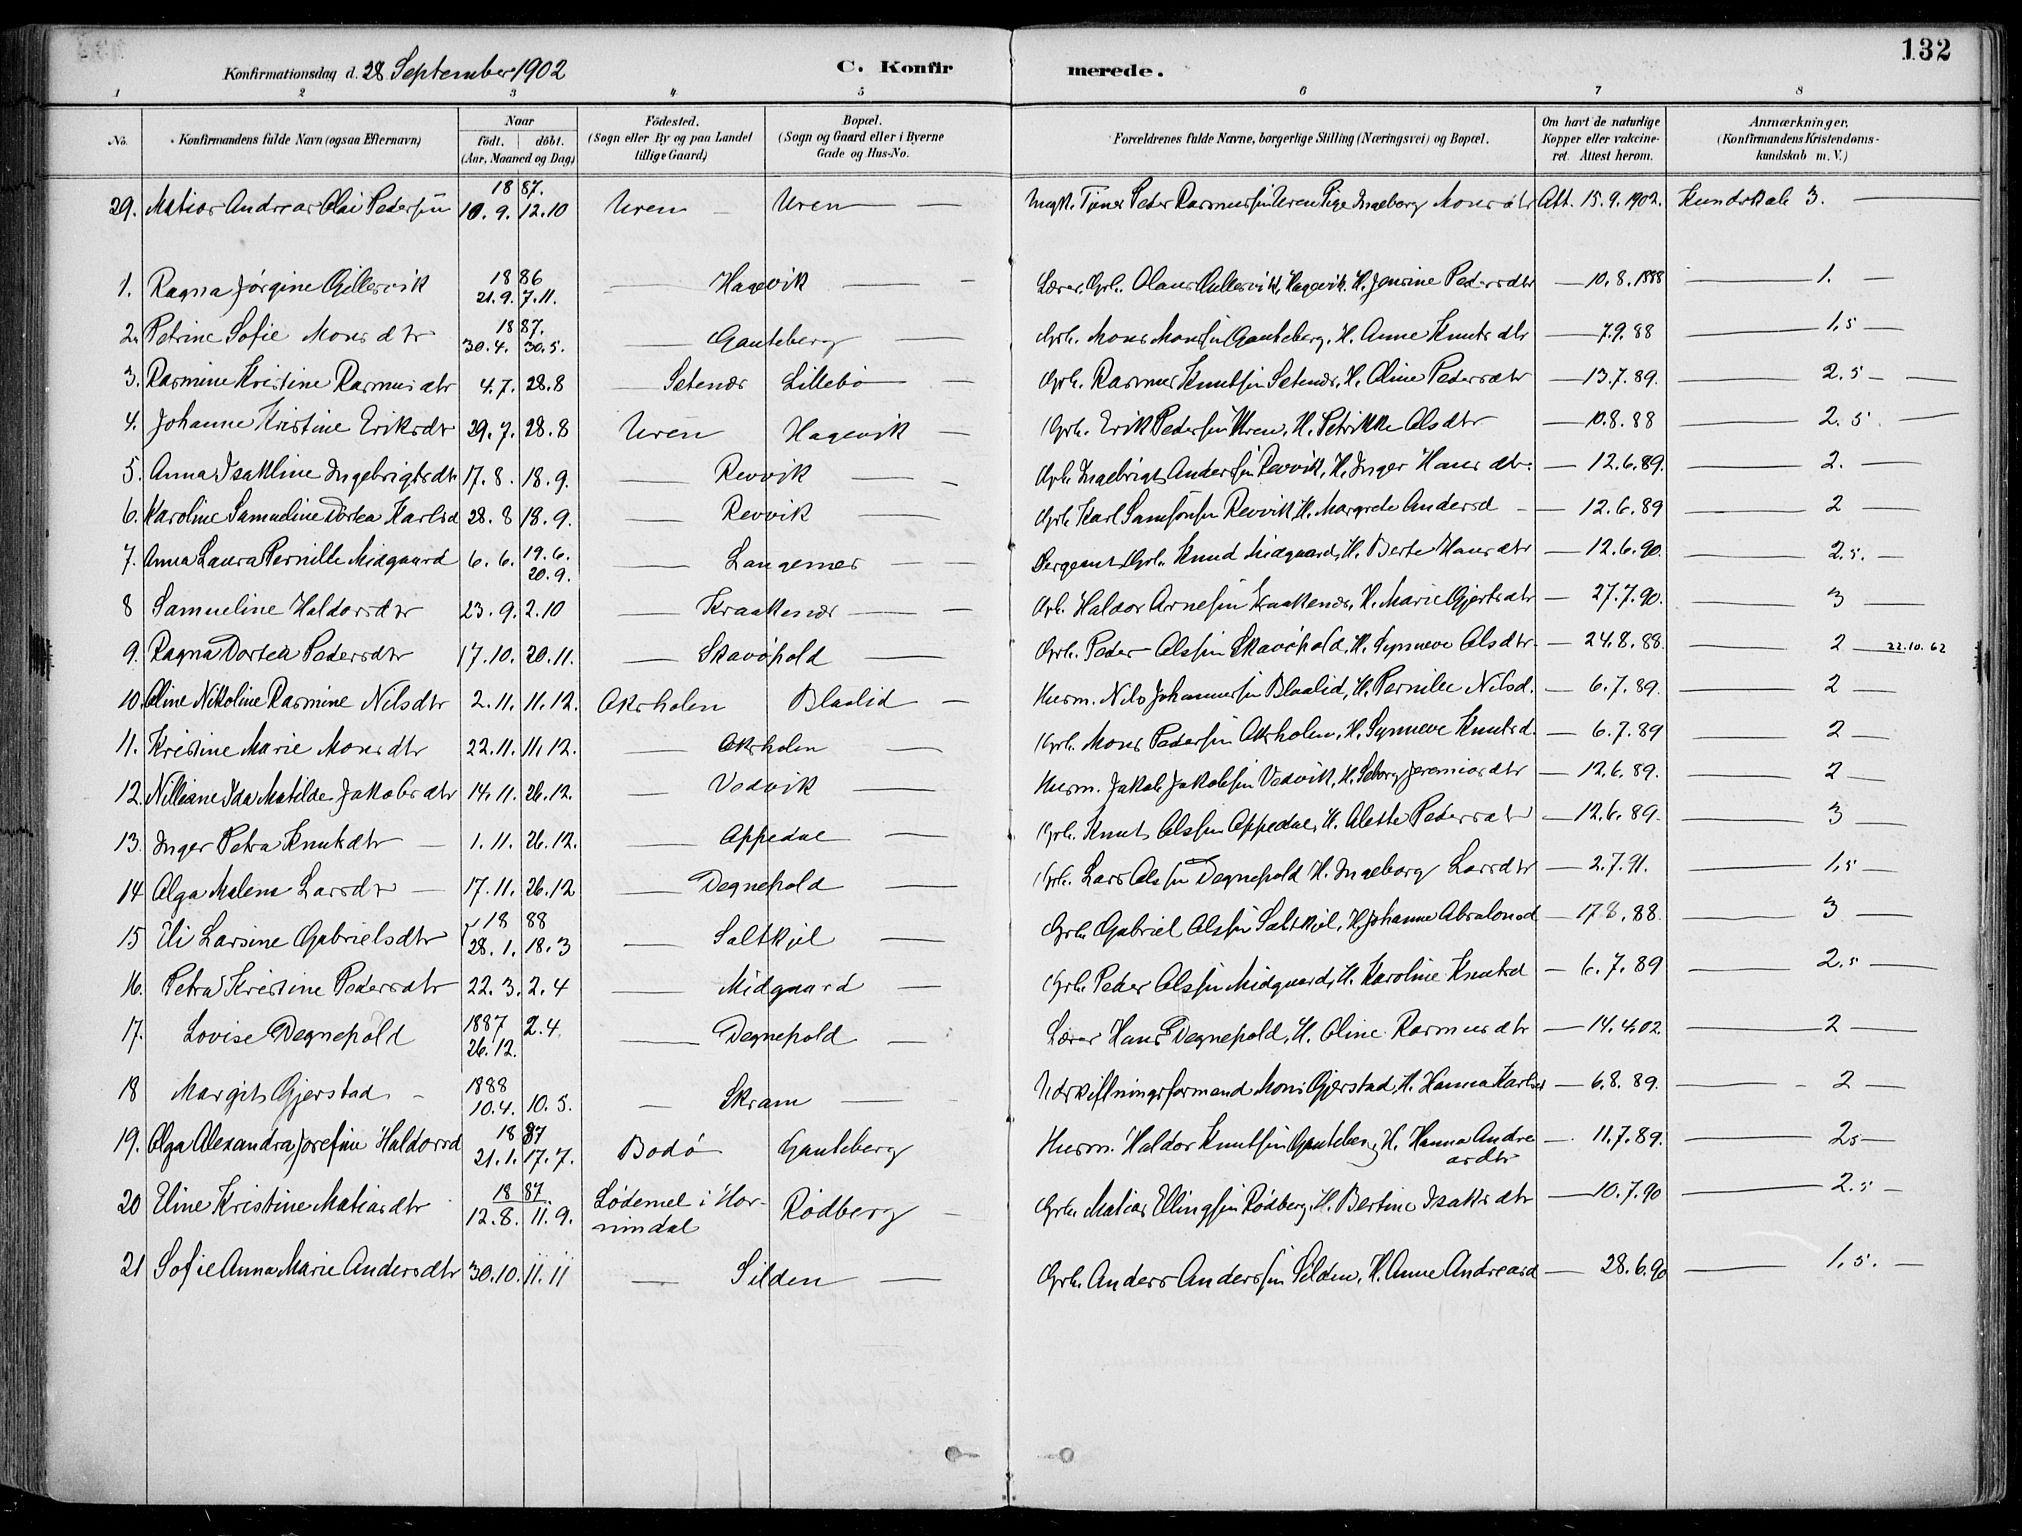 132
Konfirmationsdag d. 28 September 1902 C. Konfirmerede.
1 2 3 4 5 6 7 8
No. Konfirmandens fulde Navn (ogsaa Efternavn) Naar født. døbt. (Aar, Maaned og Dag) Fødested. (Sogn eller By og paa Landet tillige Gaard) Bopæl. (Sogn og Gaard eller i Byerne Gade og Hus-No. Forældrenes fulde Navne, borgerlige Stilling (Næringsvei) og Bopæl. Om havt de naturlige Kopper eller vakcineret. Attest herom. Anmærkninger. (Konfirmandens Kristendomskundskab m. V.)
1887.
29. Matias Andreas Olai Pedersen 10.9. 12.10 Uren Uren — Ungk. Tjener Peder Rasmussen Uren Pige Ingeborg Monsdtr Att. 15.9.1902. Kundskab 3. —
1886
1. Ragna Jørgine Gillesvik 21.9. 7.11. — Hagevik — Lærer, Grb. Olaus Gullesvik, Hagevik, H. Jensine Pedersdtr — 10.8.1888 — 1. —
1887.
2. Petrine Sofie Monsdtr 30.4. 30.5. — Gauteberg — Grb. Mons Monsen Gauteberg, H. Anne Knutsdtr — 7.9.88 — 1,5 —
3. Rasmine Kristine Rasmusdtr 4.7. 28.8 — Setenes Lillebø — Grb. Rasmus Knutsen Setenes, H. Oline Pedersdtr — 13.7.89. — 2.5 —
4. Johanne Kristine Eriksdtr 29.7. 28.8 Uren Hagevik — Grb. Erik Pedersen Uren, H. Petrikke Olsdtr — 10.8.88 — 2.5 —
5. Anna Isakline Ingebrigtsdtr 17.8. 18.9. — Revvik — Grb. Ingebrigt Andersen Revvik, H. Inger Hansdtr — 12.6.89. — 2. —
6. Karoline Samueline Dortea Karlsd 28.8 18.9. — Revvik — Grb. Karl Samsonsen Revvik H. Margrete Andersd — 12.6.89 — 2 —
7. Anna Laura Pernille Midgaard 6.6. 19.6. 20.9. — Langenes — Sergeant, Grb. Knud Midgaard, H. Berte Hansdtr — 12.6.90. — 2.5. —
8 Samueline Haldorsdtr 23.9. 2.10 — Kraakenes — Grb. Haldor Arnesen Kraakenes, H. Marie Gjertsdtr — 27.7.90. — 3 —
9. Ragna Dortea Pedersdtr 17.10. 20.11. — Skavøpold — Grb. Peder Olssen Skavøpold, H. Synneve Olsdtr — 24.8.88. — 2 — 22.10.62
10. Oline Nikoline Rasmine Nilsdtr 2.11. 11.12. Otrholen Blaalid — Husm. Nils Johannessen Blaalid, H. Pernille Nilsd. — 6.7.89. — 2 —
11. Kristine Marie Monsdtr 22.11. 11.12. — Otrholen — Grb. Mons Pedersen Otrholen, H. Synneve Knutsd. — 6.7.89 — 2 —
12. Nilliane Ida Matilde Jakobsdtr 14.11. 26.12. — Vedvik — Husm. Jakob Jakobsen Vedvik, H. Seborg Jeremiasdtr — 12.6.89. — 2 —
13. Inger Petra Knutsdtr — 1.11. 26.12. — Oppedal — Grb. Knut Olssen Oppedal, H. Alette Pedersdtr — 12.6.89. — 3 —
14 Olga Malena Larsdtr — 17.11. 26.12 — Degnepold — Grb. Lars Olssen Degnepold H. Ingeborg Larsdtr — 2.7.91. — 1,5 —
1888
15 Eli Larsine Gabrielsdtr 28.1. 18.3 — Saltkjel — Grb. Gabriel Olssen Saltkjel, H. Johanne Absalonsd — 17.8.88. — 3 —
16. Petra Kristine Pedersdtr 22.3. 2.4 — Midgaard — Grb. Peder Olssen Midgaard, H. Karoline Knutsd — 6.7.89 — 2.5 —
17. Lovise Degnepold 1887 26.12. 2.4. — Degnepold — Lærer Hans Degnepold, H. Oline Rasmusdtr — 14.4.02 — 2 —
18 Margit Gjerstad 1888 10.4. 10.5. — Skram — Udskiftningsformand Mons Gjerstad H. Hanna Karlsd — 6.8.89. — 2 —
1887
19. Olga Alexandra Josefine Haldorsd 21.1. 17.7. Bodø Gauteberg Husm. Haldor Knutsen Gauteberg H. Hanna Andreasdtr — 11.7.89. — 2.5 —
1887
20 Eline Kristine Matiasdtr 12.8. 11.9. Lødemel i Hornindal Rødberg — Grb. Matias Ellingsen Rødberg, H. Bertine Isaksdtr — 10.7.90 — 2.5 —
21 Sofie Anna Marie Andersdtr 30.10. 11.11 — Silden — Grb. Anders Anderssen Silden, H. Anne Andreasd — 28.6.90 — 1,5. —